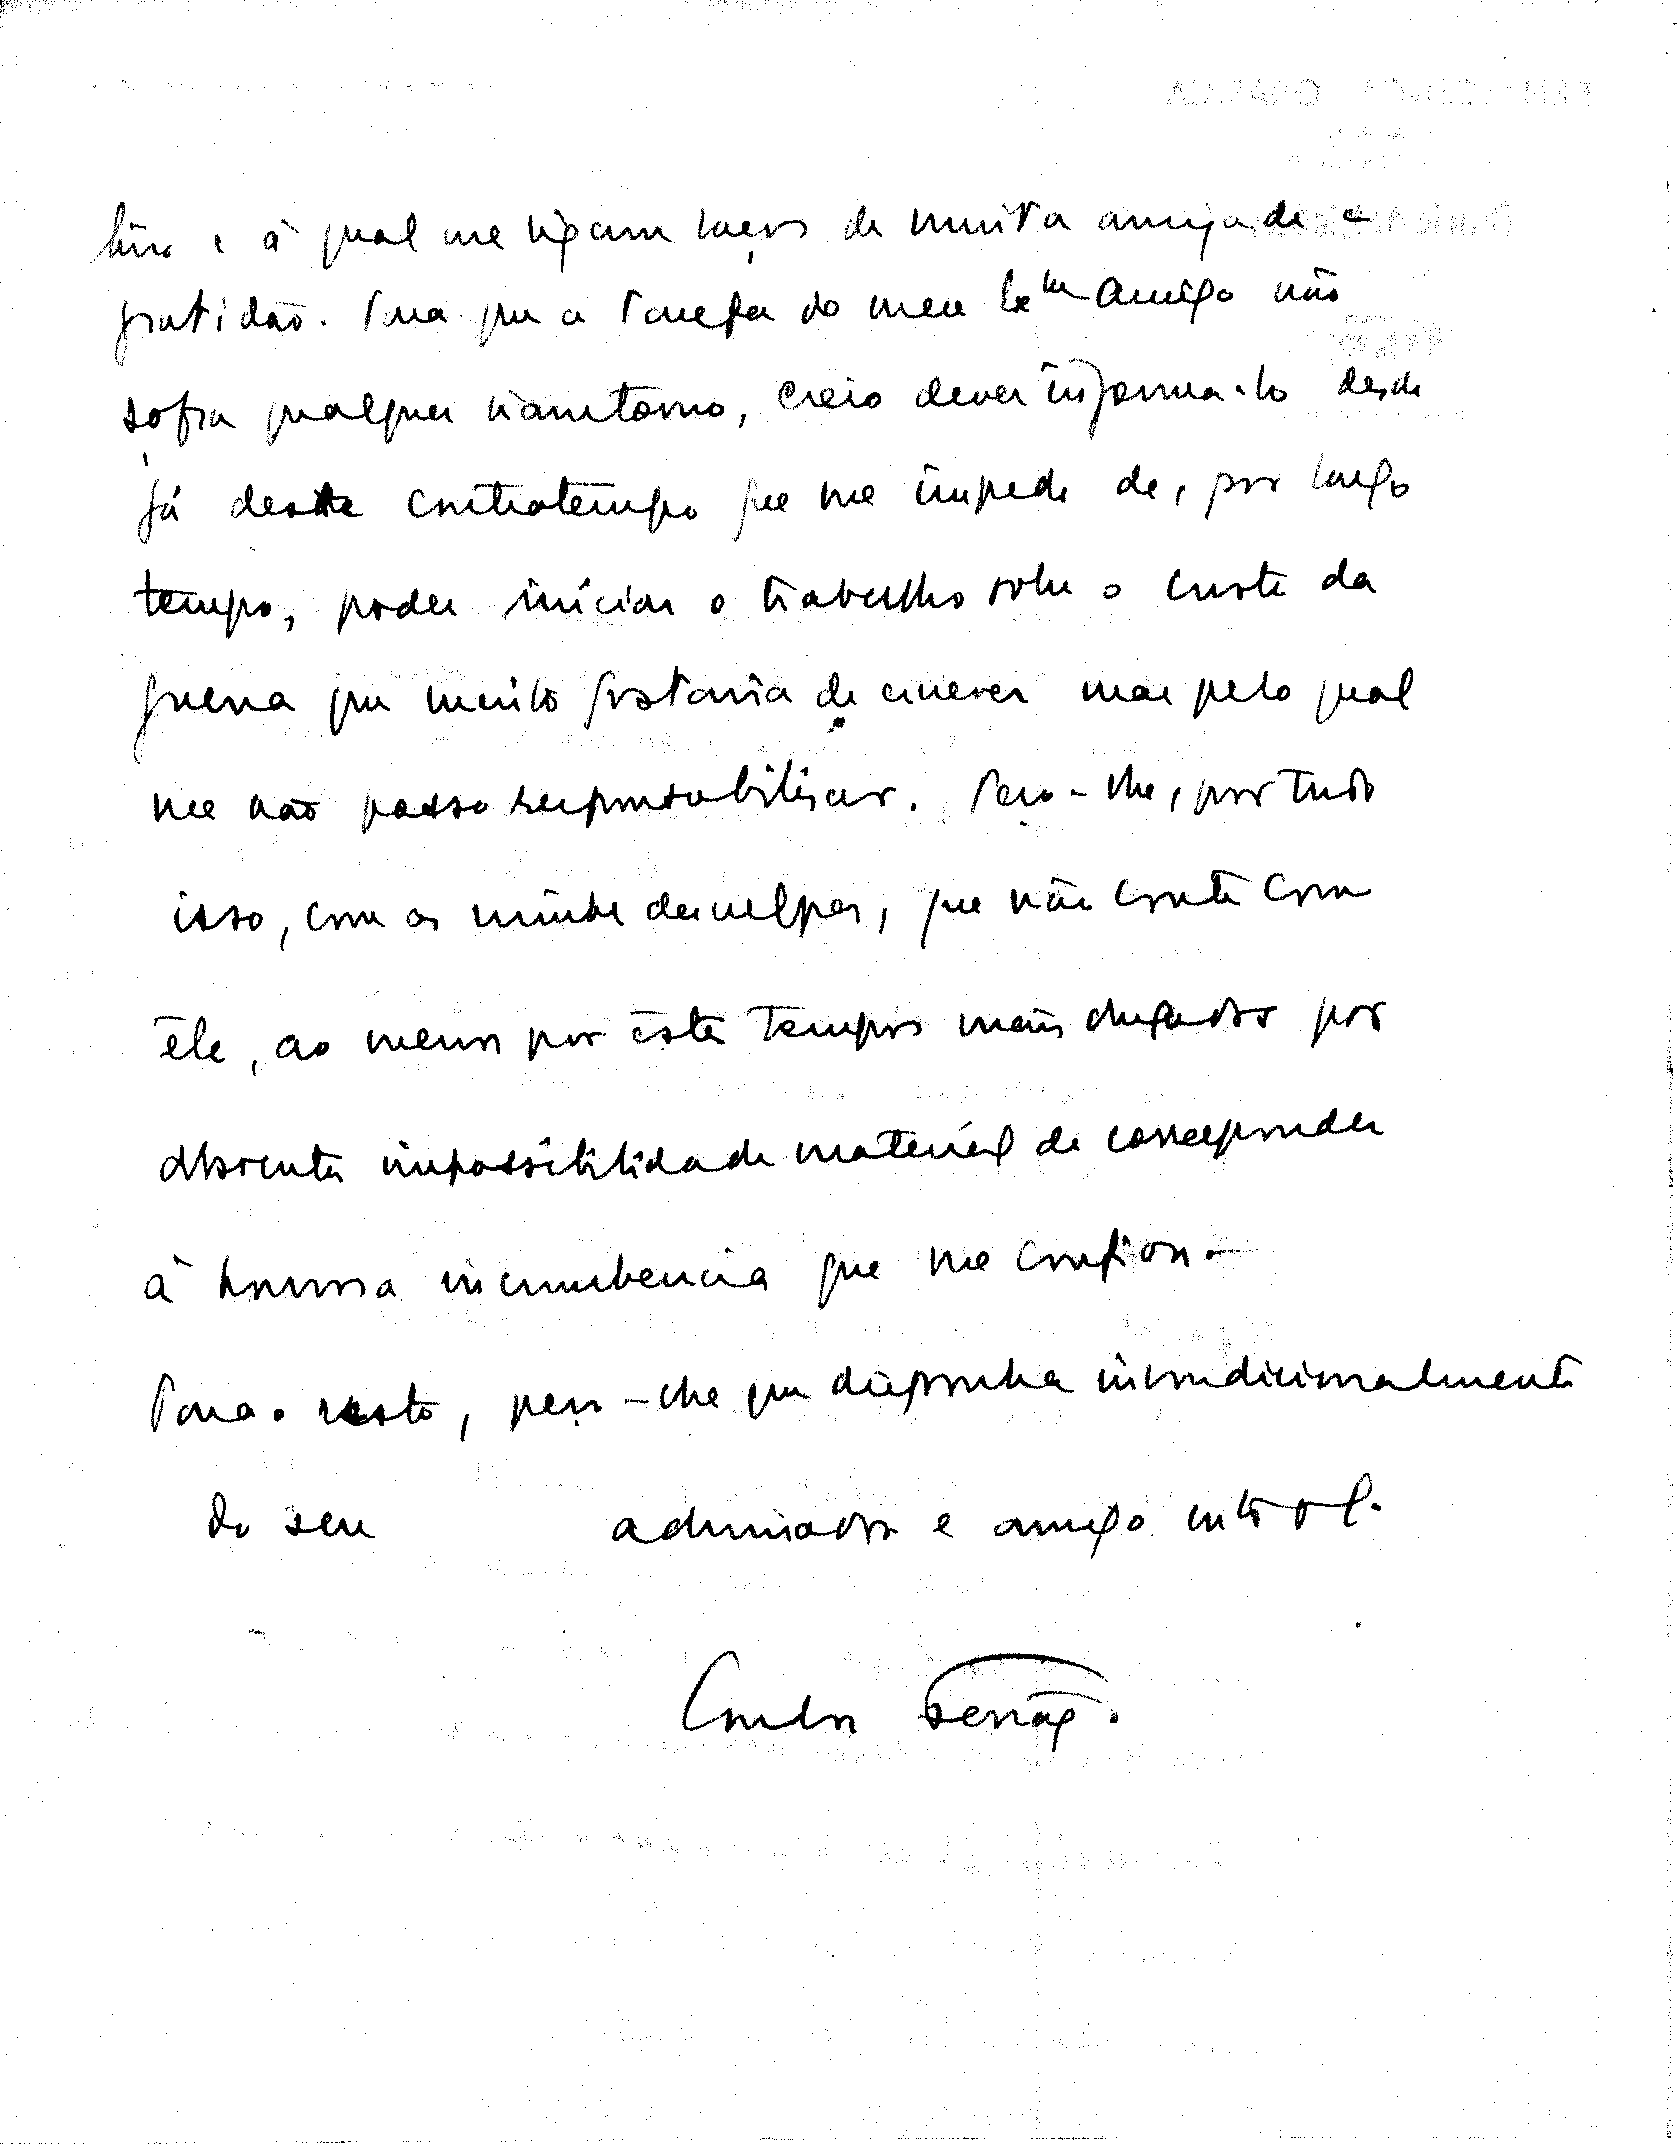 e à qual me ligam laços de muita amizade e
gratidão. Para que a tarefa do meu Exmo Amigo não
sofra qualquer transtorno, creio dever informá-lo desde
já deste contratempo que me impede de, por largo
tempo, poder iniciar o trabalho sobre o custo da
guerra que muito gostaria de escrever mas pelo qual
me não posso responsabilizar. Peço-lhe, por tudo
isso, com as minhas desculpas, que não conte com
êle, ao menos por êstes tempos mais chegados por
absoluta impossibilidade material de corresponder
à honrosa incumbencia que me confiou.
Para o resto, peço-lhe que disponha incondicionalmente
do seu admirador e amigo
Carlos Serrão.